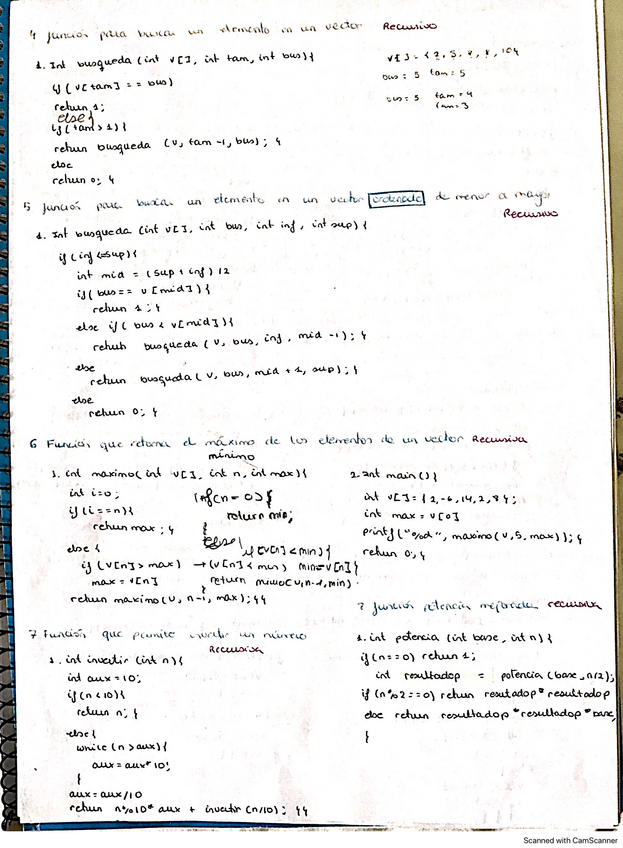 4 función para buscar un elemento en un vector Recursivo
1. Int busqueda (int v[], int tam, int bus){
if (v[tam] == bus)
return 1;
else{
if (tam > 1) {
return busqueda (v, tam -1, bus); }
else
return 0; }
bus = 5 tam = 5
bus = 5 tam = 4
tam = 3
5 función para buscar un elemento en un vector ordenado de menor a mayor
Recursivo
1. Int busqueda (int v[], int bus, int inf, int sup) {
if (inf <= sup) {
int mid = (sup + inf) /2
if (bus == v[mid]) {
return 1; }
else if (bus < v[mid]) {
return busqueda (v, bus, inf, mid -1); }
else
return busqueda (v, bus, mid + 1, sup); }
else
return 0; }
6 Función que retorna el máximo de los elementos de un vector Recursiva
mínimo
1. int maximo( int v[], int n, int max) {
int i=0;
if (i==n){
return max; }
else {
if (v[n] > max)
max = v[n]
return maximo(v, n-1, max); }}
if(n = 0){
return min;
}
else{
if (v[n] < min) {
→ (v[n] < min) min=v[n]}
return minimo(v, n-1, min).
}
2. int main () {
int v[] = {2, -6, 14, 2, 8};
int max = v[0]
printf("%d", maximo(v, 5, max)); }
return 0; }
7 Función que permite invertir un número
Recursiva
1. int invertir (int n) {
int aux = 10;
if (n < 10) {
return n; }
else {
while (n > aux) {
aux = aux * 10;
}
aux = aux /10
return n%10* aux + invertir (n/10); }}
? función potencia mejorada recursiva
1. int potencia (int base, int n) {
if (n==0) return 1;
int resultadop = potencia (base, n/2);
if (n%2==0) return resultadop * resultadop
else return resultadop * resultadop * base;
}
Scanned with CamScanner